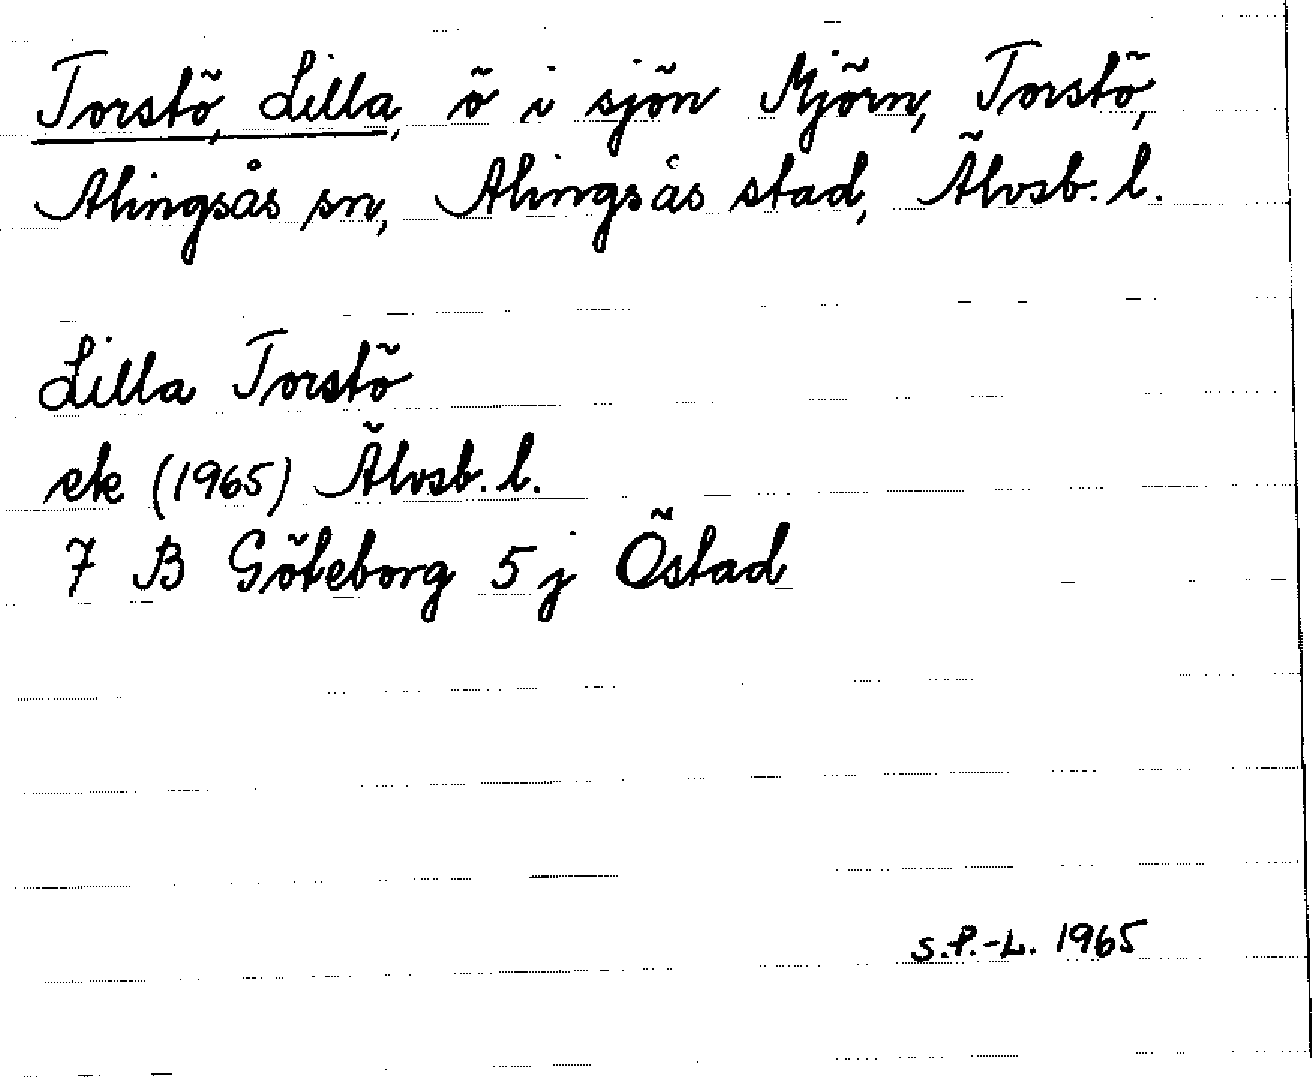 Torstö, Lilla, ö i sjön Mjörn, Torstö,
Alingsås sn, Alingsås stad, Älvsb. l.
Lilla Torstö
ek (1965) Älvsb. l.
7 B Göteborg 5 j Östad
S.P.-L. 1965